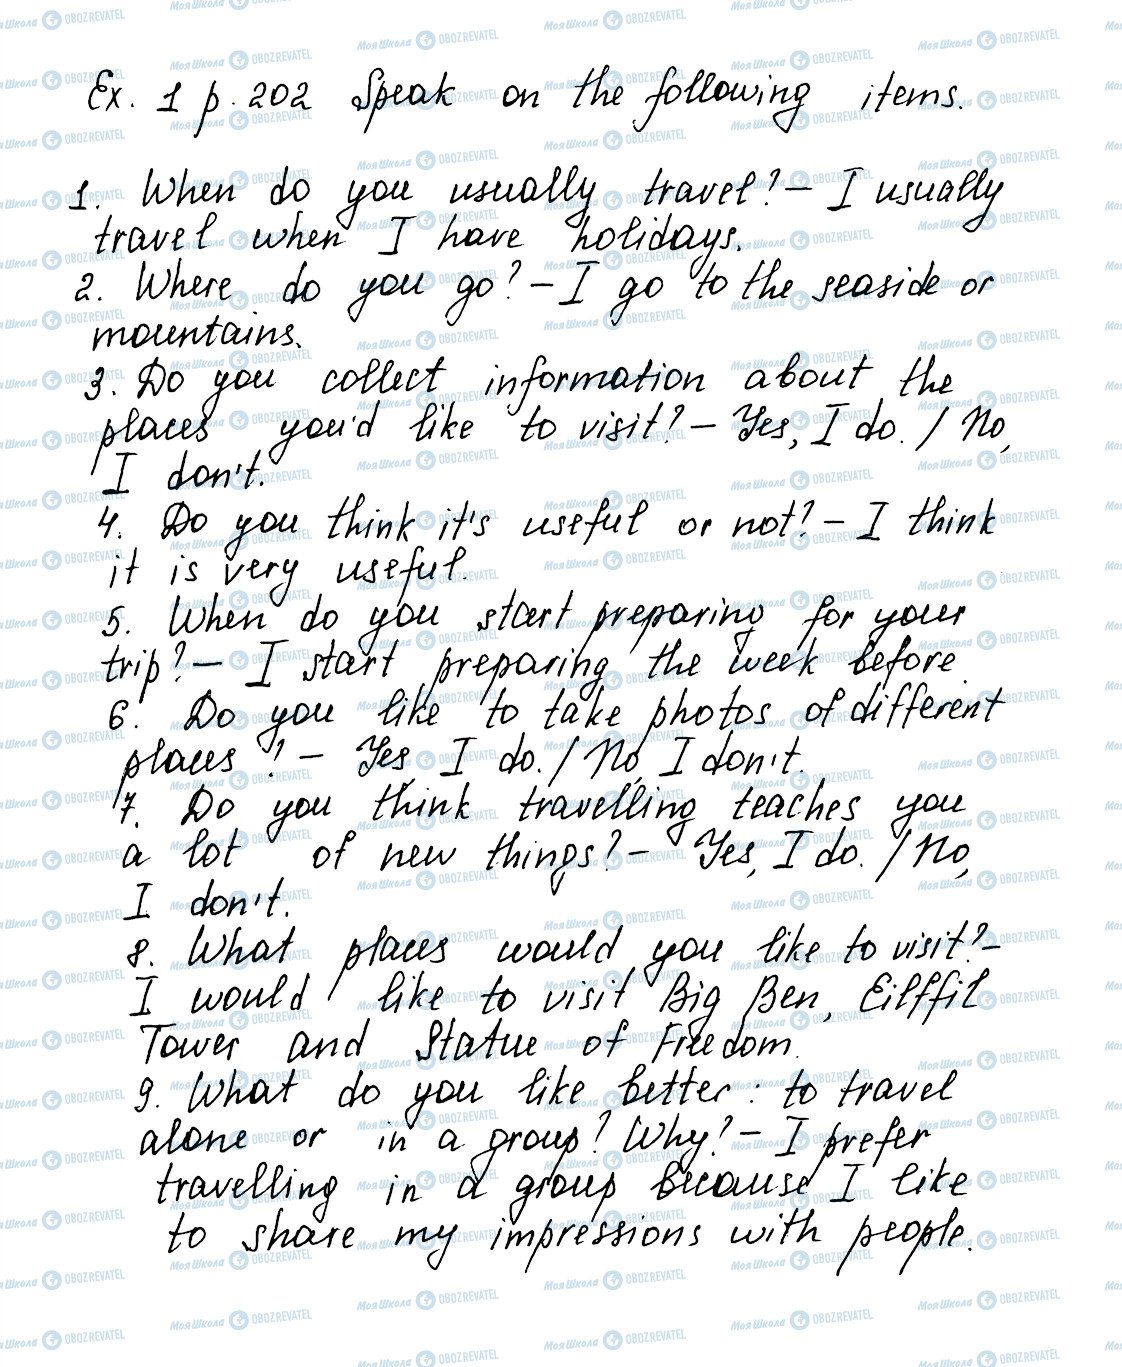 Ex. 1 p. 202 Speak on the following items.
1. When do you usually travel? – I usually
travel when I have holidays.
2. Where do you go? – I go to the seaside or
mountains.
3. Do you collect information about the
places you'd like to visit? – Yes, I do. / No,
I don't.
4. Do you think it's useful or not? – I think
it is very useful.
5. When do you start preparing for your
trip? – I start preparing the week before.
6. Do you like to take photos of different
places? – Yes, I do. / No, I don't.
7. Do you think travelling teaches you
a lot of new things? – Yes, I do. / No,
I don't.
8. What places would you like to visit? –
I would like to visit Big Ben, Eilffil
Tower and Statue of Freedom.
9. What do you like better: to travel
alone or in a group? Why? – I prefer
travelling in a group because I like
to share my impressions with people.
Моя Школа OBOZREVATEL